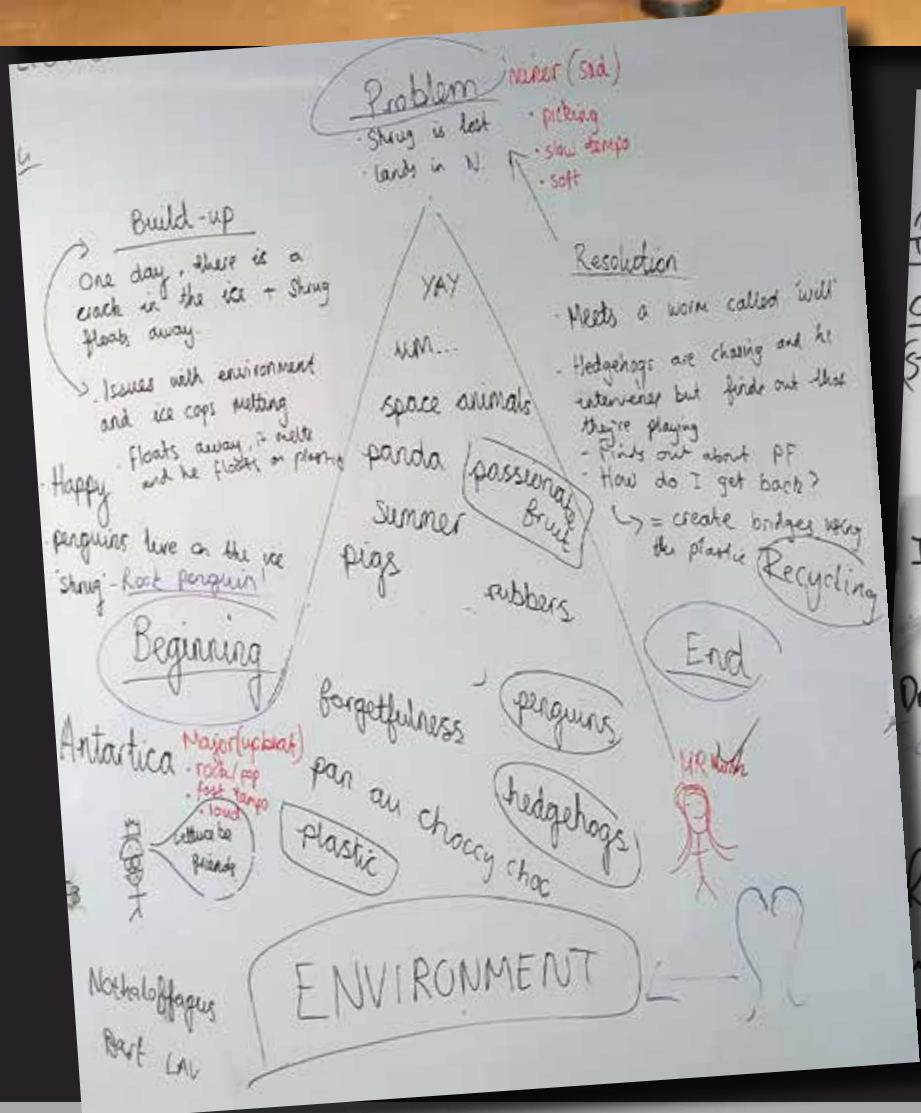 Problem
minor (sad)
· Shrug is lost
· lands in N.
· picking
· slow tempo
· soft
Build-up
One day, there is a
crack in the ice + Shrug
floats away.
· Issues with environment
and ice caps melting
· Floats away, it melts
and he floats on plastic
· Happy
· penguins live on the ice
'shrug' - Rock penguin!
Beginning
Antartica
Major (upbeat)
· rock/pop
· fast tempo
· loud
Lettuce be
friends
YAY
UM...
space animals
panda
passionate
fruit
Summer
pigs
rubbers
forgetfulness
penguins
pan au choccy choc
hedgehogs
plastic
Resolution
· Meets a worm called 'will'
· Hedgehogs are chasing and he
intervenes but finds out that
they're playing
- Finds out about PF
- How do I get back?
= create bridges using
the plastic
Recycling
End
ENVIRONMENT